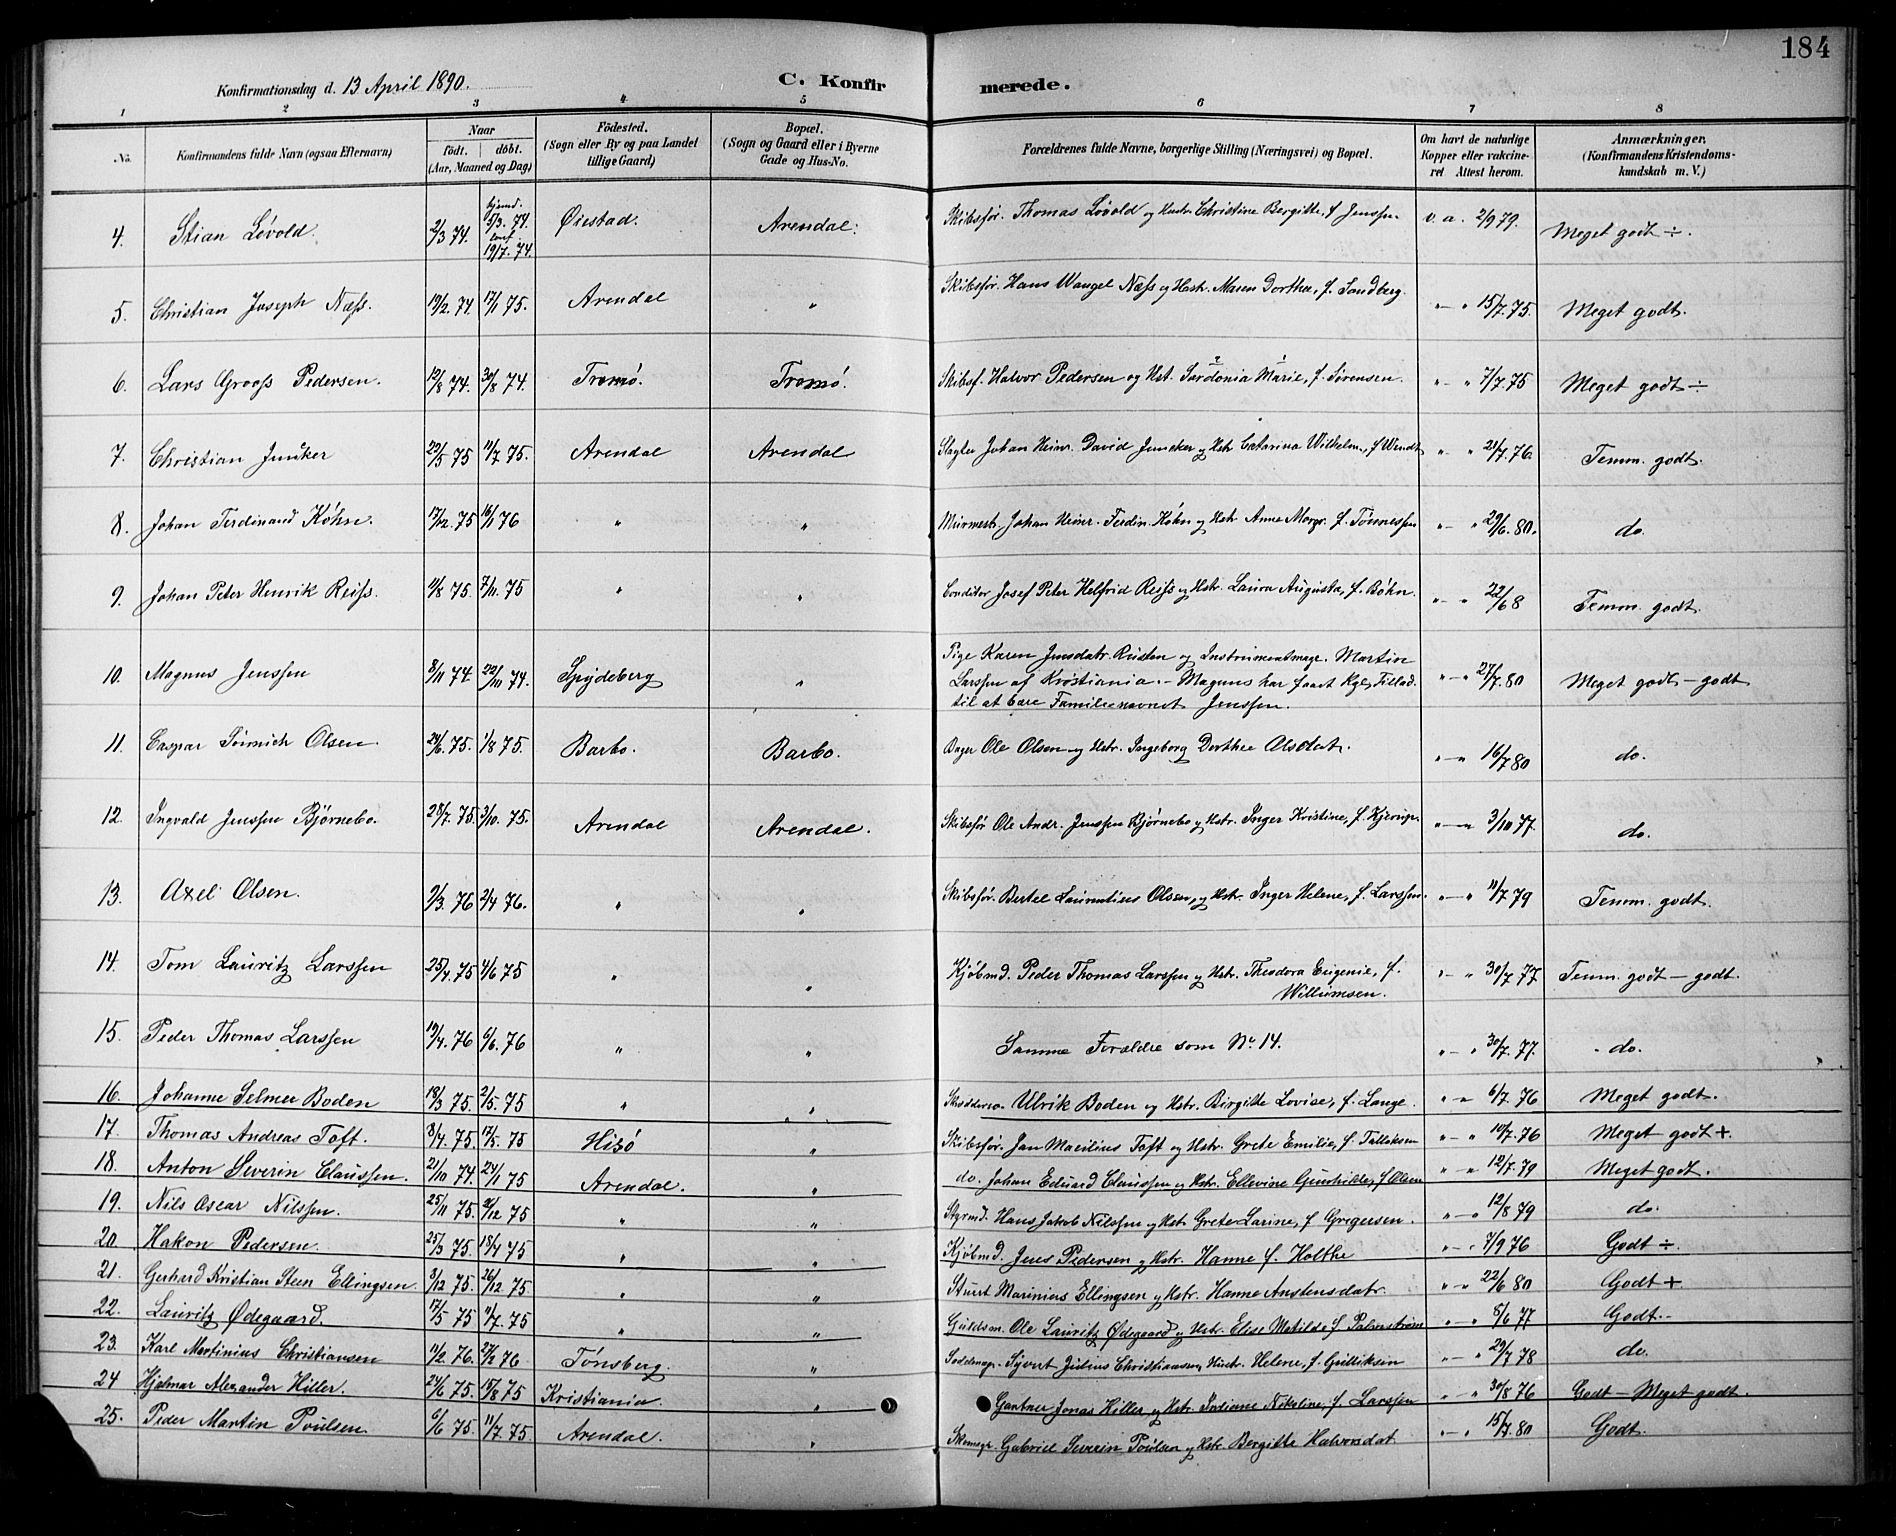 184
Konfirmationsdag d. 13 April 1890. C. Konfirmerede.
1 2 3 4 5 6 7 8
No. Konfirmandens fulde Navn (ogsaa Efternavn) Naar födt. döbt. (Aar, Maaned og Dag) Födested. (Sogn eller By og paa Landet tillige Gaard) Bopæl. (Sogn og Gaard eller i Byerne Gade og Hus-No. Forældrenes fulde Navne, borgerlige Stilling (Næringsvei) og Bopæl. Om havt de naturlige Kopper eller vakcineret Attest herom. Anmærkninger. (Konfirmandens Kristendomskundskab m. V.)
4. Stian Lövold. 2/3 74. hjemd. 5/3. 74. conf. 19/7. 74. Øiestad. Arendal. Skibsför. Thomas Lövold og Hustr. Christine Bergitte, f. Jenssen. v. a. 2/9 79. Meget godt ÷.
5. Christian Joseph Næss. 19/2. 74. 17/1 75. Arendal " Skibsför. Hans Wangel Næss og Hustr. Maren Dorthea, f. Sandberg. " - " 15/7. 75. Meget godt.
6. Lars Grooss Pedersen. 12/8 74. 30/8 74. Tromö. Tromö. Skibsf. Halvor Pedersen og Hst. Sardonia Marie, f. Sörensen. " - " 7/7. 75 Meget godt ÷
7. Christian Junker 22/5 75 11/7 75. Arendal Arendal Slagter Johan Heinr. David Juncker og Hstr. Catarina Wilhelm., f. Wendt " - " 21/7. 76. Temm. godt.
8. Johan Ferdinand Köhn. 17/12. 75 16/1 76 " " Murmest. Johan Heinr. Ferdin. Köhn og Hstr. Anne Margr. f. Tönnessen " - " 29/6. 80. do.
9. Johan Peter Henrik Reiss. 11/8 75. 7/11. 75 " " Conditor Josef Peter Helfrid Reiss og Hstr. Laura Augusta, f. Böhn. " - " 22/6 8 Temm. godt.
10. Magnus Jenssen 8/11 74. 22/11 74. Spydeberg " Pige Karen Jensdatr. Rusten og Instrumentmag. Martin Larssen af Kristiania. - Magnus har faaet Kgl. Tillad. til at bære Familienavnet Jenssen. " - " 27/7. 80 Meget godt - godt
11. Caspar Sönnich Olsen. 24/6. 75. 1/8 75. Barbo. Barbo. Bager Ole Olsen og Hstr. Ingeborg Dorthee Alsdat. " - " 16/7 80 do.
12. Ingvald Jenssen Björnebo. 28/7. 75. 3/10. 75. Arendal Arendal. Skibsför Ole Andr. Jenssen Björnebo og Hstr. Inger Kristine, f. Kjerup. " - " 3/10 77. do.
13. Axel Olsen. 9/3. 76 2/4 76. " " Skibsför. Bertel Laurentius Olsen, og Hstr. Inger Helene, f. Larssen. " - " 11/7 79 Temm. godt.
14. Tom Lauritz Larssen 25/4. 75 4/6 75 " " Kjöbmd. Peder Thomas Larssen og Hstr. Theodora Eugenie, f. Willumsen. " - " 30/7 77 Temm. godt - godt.
15. Peder Thomas Larssen 19/4. 76 6/6. 76 " " Samme Forældre som No. 14. " - " 30/7. 77. do.
16. Johanne Selmer Boden 18/3 75. 2/5. 75 " " Ulrik Boden og Hstr. Birgitte Lovise, f. Lange. " - " 6/7. 76 Meget godt.
17. Thomas Andreas Toft. 8/4. 75 17/5. 75 Hisö " Skibsför. Jan Macilius Toft og Hstr. Grete Emilie, f. Tallaksen " - " 10/7. 76 Meget godt +.
18. Anton Severin Claussen. 21/10 74. 24/1 75 Arendal. " do. Johan Eduard Claussen og Hstr. Ellevine Gunhilde, f. Olsen " - " 12/7. 79 Meget godt.
19. Nils Oscar Nilssen. 25/11 75. 2/12 75 " " Styrmd. Hans Jakob Nilssen og Hstr. Grete Larine, f. Gregersen. " - " 12/8 79 do.
20 Hakon Pedersen. 25/3 75 18/4 75 " " Kjöbmd. Jens Pedersen og Hstr. Hanne f. Holthe " - " 7/9 76 Godt ÷.
21. Gerhard Kristian Steen Ellingsen. 3/12 75. 26/12 75 " " Marinius Ellingsen og Hstr. Hanne Anstensdatr. " - " 22/6 80 Godt +
22. Lauritz Ödegaard. 17/5 75 11/7. 75 " " Guldsm. Ole Lauritz Ödegaard og Hstr. Elise Matilde f. Palmström " - " 8/6 77 Godt.
23. Karl Martinius Christiansen 11/2. 76. 27/2 76 Tönsberg. " Sadelmagr. Syvert Julius Christiansen og Hustr. Helene, f. Gulliksen " - " 29/7 78 do.
24 Hjalmar Alexander Hiller. 24/6 75. 15/8 75 Kristiania. " Gartner Jonas Hiller og Hstr. Indiane Nikoline, f. Larssen " - " 30/8 76 Godt - Meget godt.
25. Peder Martin Poulsen. 6/6 75. 11/7. 75. Arendal. " Skomagr. Gabriel Severin Poulsen og Hstr. Bergitte Halvorsdat " - " 15/7. 80 Godt.